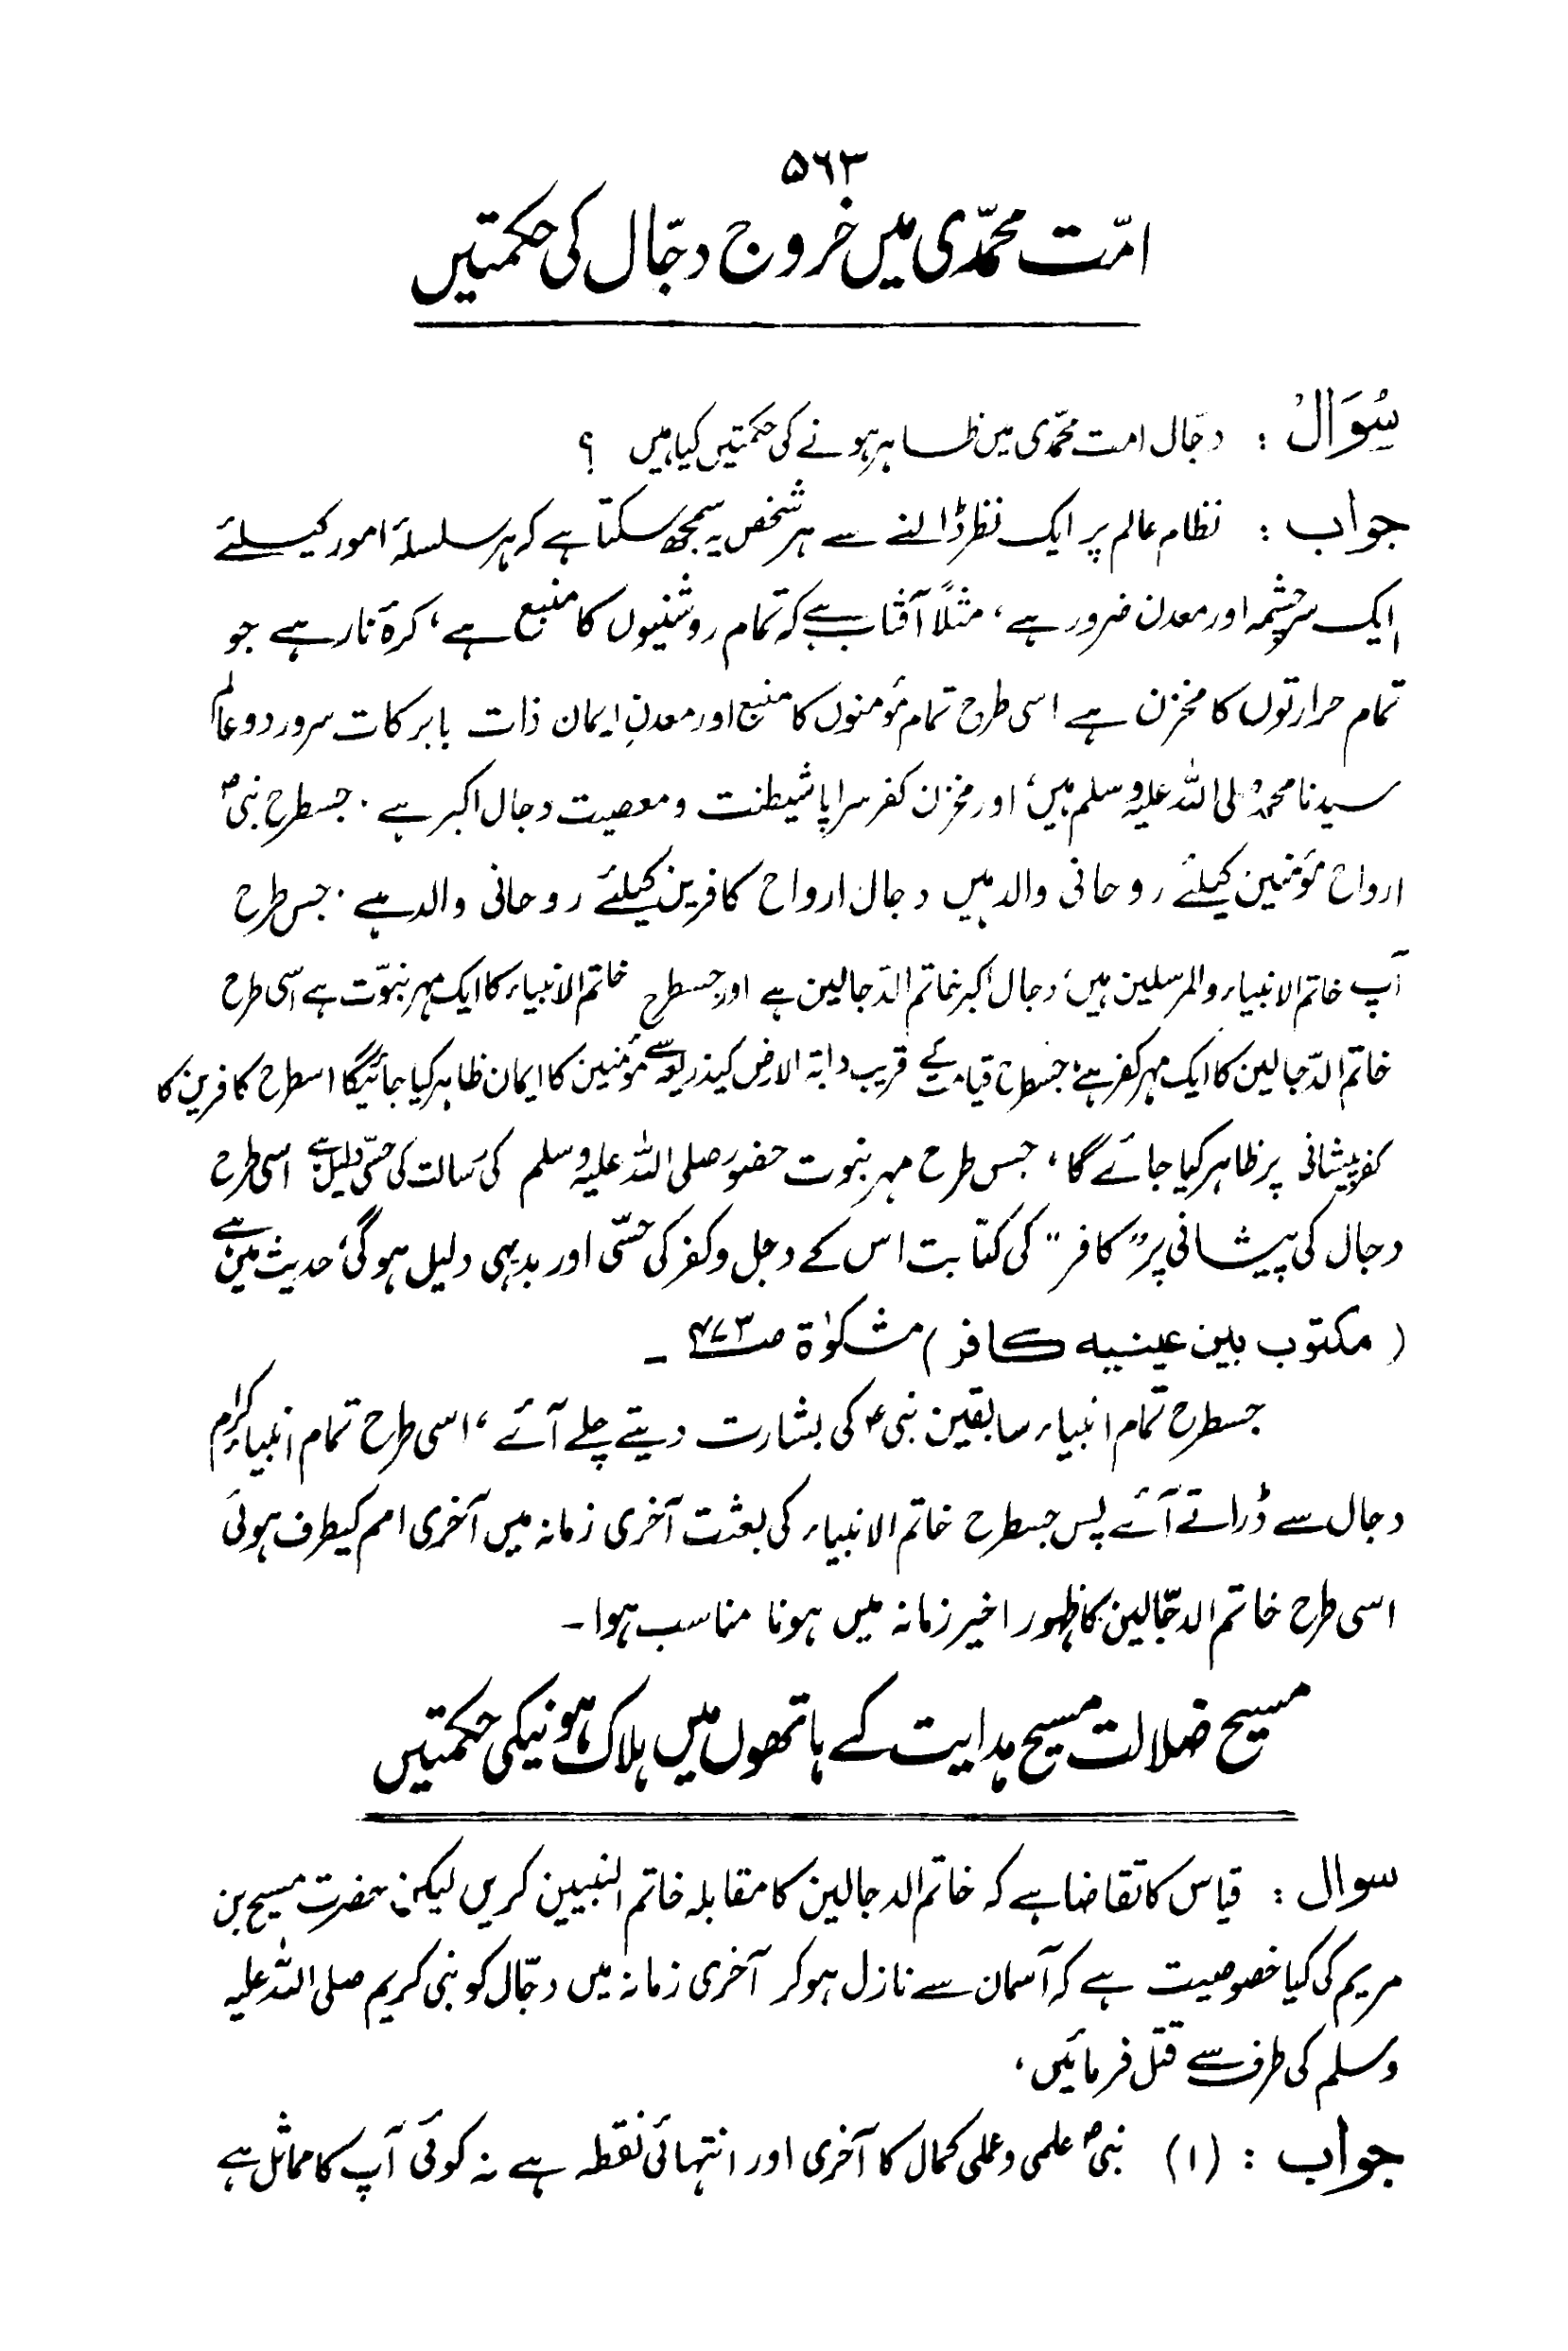 ۵۶۳
امّت محمّدی میں خروج دجّال کی حکمتیں
سُوَالْ : دجّال امت محمّدی میں ظاہر ہونے کی حکمتیں کیا ہیں ؟
جواب : نظام عالم پر ایک نظر ڈالنے سے ہر شخص یہ سمجھ سکتا ہے کہ ہر سلسلۂ امور کیلئے
ایک سرچشمہ اور معدن ضرور ہے، مثلاً آفتاب ہے کہ تمام روشنیوں کا منبع ہے، کرۂ نار ہے جو
تمام حرارتوں کا مخزن ہے اسی طرح تمام مؤمنوں کا منبع اور معدنِ ایمان ذات بابرکات سرور دو عالم
سیدنا محمدؐ صلی اللہ علیہ وسلم ہیں، اور مخزن کفر سراپا شیطنت و معصیت دجال اکبر ہے ۔ جسطرح نبیؐ
ارواح مؤمنین کیلئے روحانی والد ہیں دجال ارواح کافرین کیلئے روحانی والد ہے ۔ جس طرح
آپ خاتم الانبیاء والمرسلین ہیں، دجال اکبر خاتم الدّجالین ہے اور جسطرح خاتم الانبیاء کا ایک مہر نبوّت ہے اسی طرح
خاتم الدّجالین کا ایک مہر کفر ہے، جسطرح قیامت کے قریب دابۃ الارض کیذریعہ سے مؤمنین کا ایمان ظاہر کیا جائیگا اسطرح کافرین کا
کفر پیشانی پر ظاہر کیا جائے گا، جس طرح مہر نبوت حضور صلی اللہ علیہ وسلم کی رسالت کی حسّی دلیل ہے اسی طرح
دجال کی پیشانی پر "کافر" کی کتابت اس کے دجل و کفر کی حسّی اور بدیہی دلیل ہوگی، حدیث میں ہے
( مکتوب بین عینیہ کافر ) مشکوٰۃ صـ۴۷۳ ـ
جسطرح تمام انبیاء سابقین نبیؑ کی بشارت دیتے چلے آئے، اسی طرح تمام انبیاء کرام
دجال سے ڈراتے آئے پس جسطرح خاتم الانبیاء کی بعثت آخری زمانہ میں آخری امم کیطرف ہوئی
اسی طرح خاتم الدجّالین کا ظہور اخیر زمانہ میں ہونا مناسب ہوا ـ
مسیح ضلالت مسیح ہدایت کے ہاتھوں میں ہلاک ہونیکی حکمتیں
سوال : قیاس کا تقاضا ہے کہ خاتم الدجالین کا مقابلہ خاتم النبیین کریں لیکن حضرت مسیح بن
مریم کی کیا خصوصیت ہے کہ آسمان سے نازل ہوکر آخری زمانہ میں دجّال کو نبی کریم صلی اللہ علیہ
وسلم کی طرف سے قتل فرمائیں ،
جواب : (۱) نبیؐ علمی و عملی کمال کا آخری اور انتہائی نقطہ ہے نہ کوئی آپ کا مماثل ہے